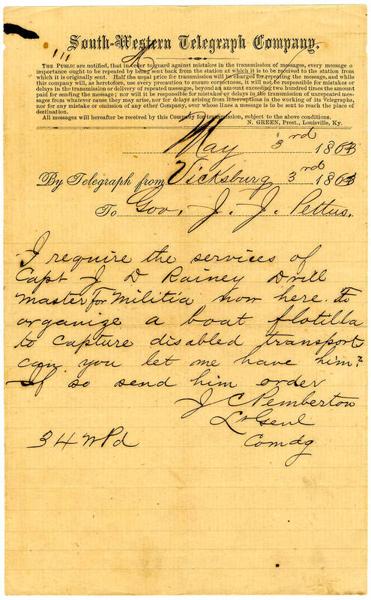 South-Western Telegraph Company.
THE PUBLIC are notified, that in order to guard against mistakes in the transmission of messages, every message o
importance ought to be repeated by being sent back from the station at which it is to be received to the station from
which it is originally sent. Half the usual price for transmission will be charged for repeating the message, and while
this company will, as heretofore, use every precaution to ensure correctness, it will not be responsible for mistakes or
delays in the transmission or delivery of repeated messages, beyond an amount exceeding two hundred times the amount
paid for sending the message; nor will it be responsible for mistakes or delays in the transmission of unrepeated mes-
sages from whatever cause they may arise, nor for delays arising from interruptions in the working of its Telegraphs,
nor for any mistake or omission of any other Company, over whose lines a message is to be sent to reach the place of
destination.
All messages will hereafter be received by this Company for transmission, subject to the above conditions.
N. GREEN, Prest., Louisville, Ky.
May 3rd 1863
By Telegraph from Vicksburg 3rd 1863
To Gov. J. J. Pettus.
I require the services of
Capt J. D Rainey Drill
master for militia now here. To
organize a boat flotilla
to capture disabled transport
can you let me have him?
If so send him order
J C Pemberton
Lt Genl
34 W Pd Comdg